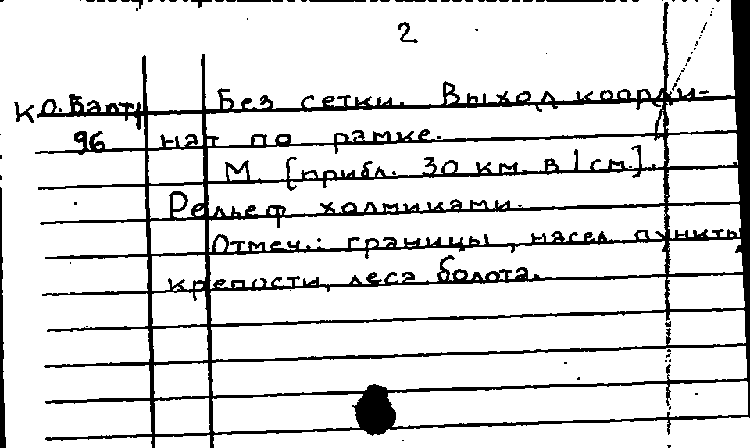 2
К О. Балт. Без сетки. Выход коорди-
96 нат по рамке.
М. [прибл. 30 км. в 1 см].
Рельеф холмиками.
Отмеч.: границы, насел. пункты
крепости, леса болота.